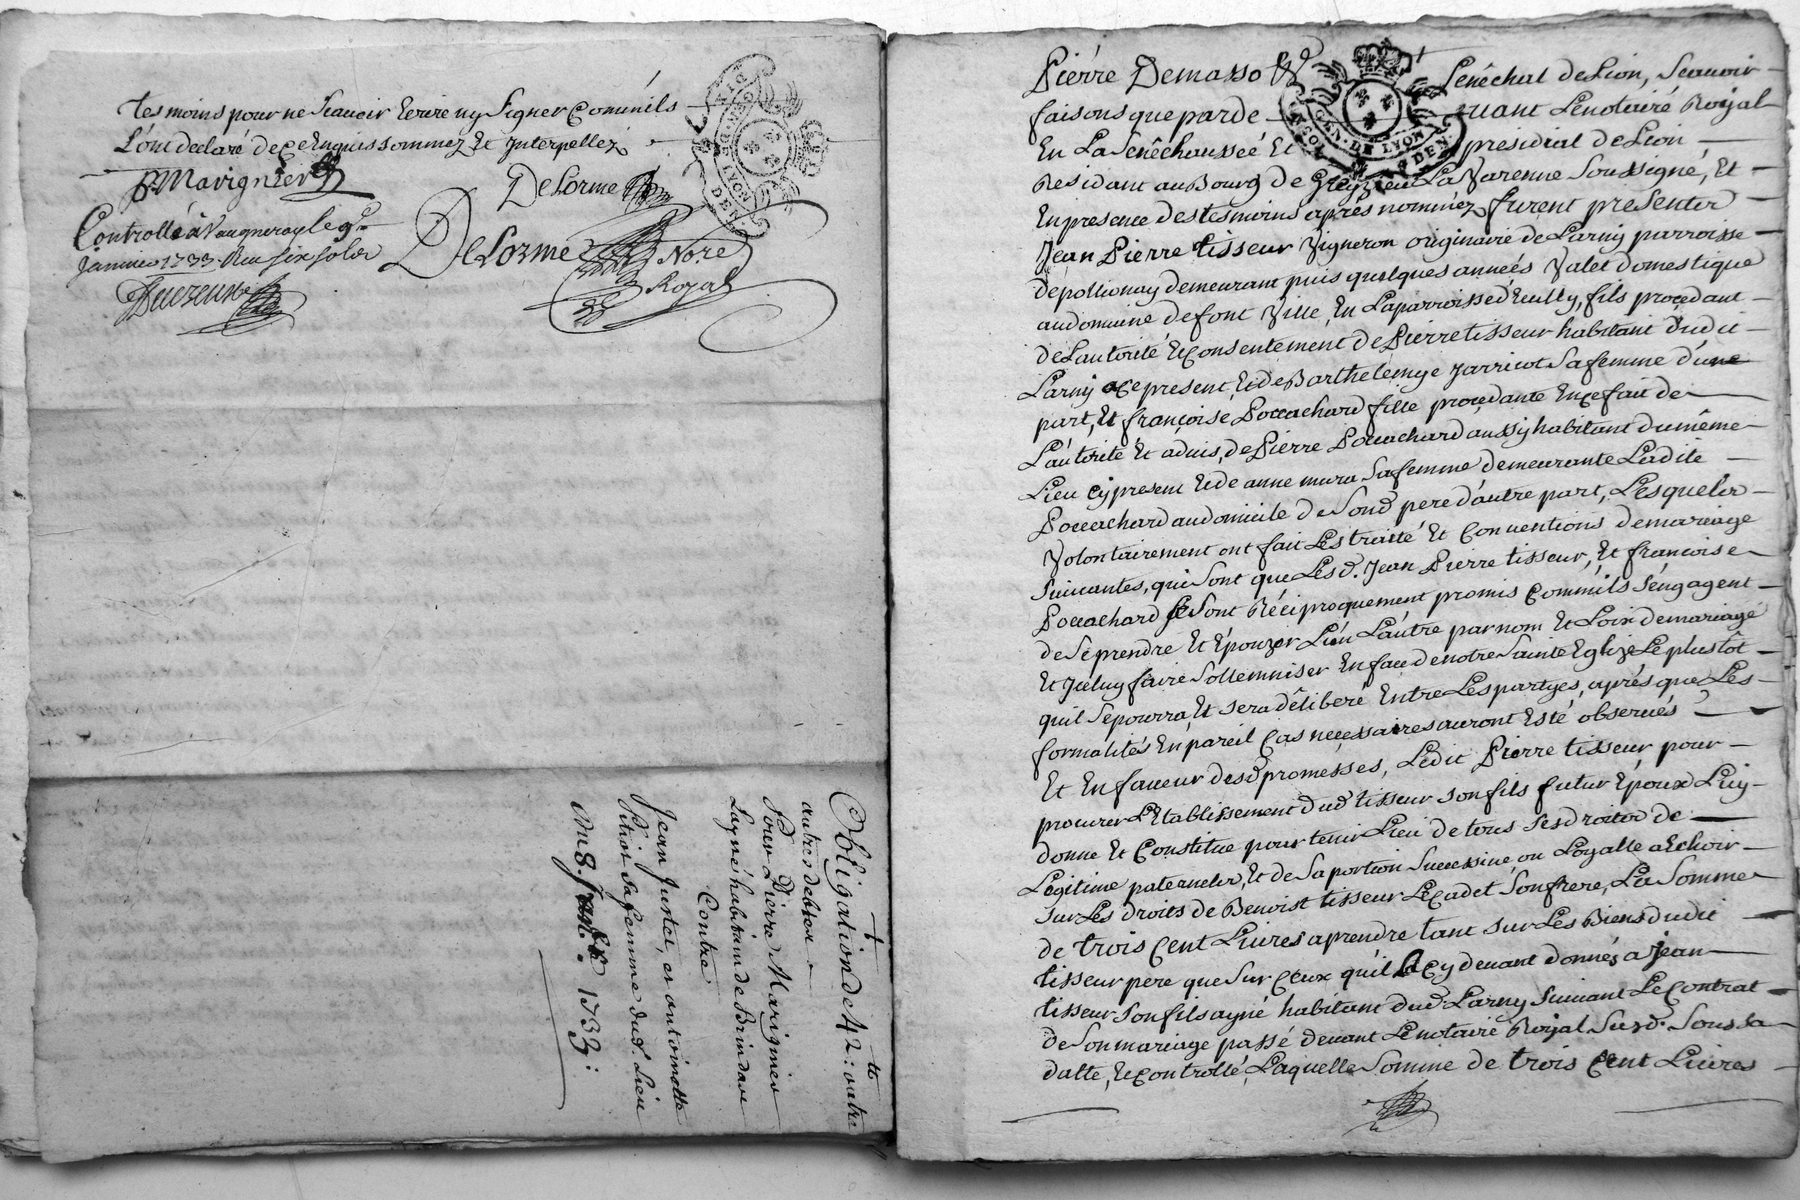 tesmoins pour ne sçauoir Ecrire ny signer Comm'ils
L'ont declaré de ce Enquis sommez Et Interpellez
P Marignier
DeLorme
Controllé à Vaugneray le 9e
Januier 1733. Reçu six sols
DeLorme Nore
Royal
GEN. DE LYON
Obligation de 42 tt : outre
autres debtes
Pour Sr Pierre Marignier
Layné habitant de Brindas
Contre
Jean Juster, et antoinette
Pitiot sa femme dud. Lieu
Du 8. Janu. 1733:
Pierre Demasso Senêchal de Lion, Sçauoir
faisons que par de uant Le notairé Royal
En La Senêchaussée Et presidial de Lion
Residant au Bourg de Greyzieu La Varenne Soussigné, Et
En presence des tesmoins aprés nommez furent presents
Jean Pierre tisseur Vigneron originaire de Larny parroisse
de pollionay demeurant puis quelques anneés Valet domestique
au domaine de font Ville, En La parroisse d'Eculy, fils procedant
de L'autorité & consentement de Pierre tisseur habitant dudit
Larny a ce present, & de Barthelemye Jarricot sa femme d'une
part, Et françoise Bouchard fille procedante En ce fait de
L'autorité Et aduis, de Pierre Bouchard aussy habitant du même
Lieu cy present & de anne mura sa femme demeurante Ladite
Bouchard au domicile de Sond pere d'autre part, Lesquels
Volontairement ont fait Les traité Et Conuentions de mariage
Suiuantes, qui sont que Lesd. Jean Pierre tisseur, Et françoise
Bouchard se sont Réciproquement promis Comm'ils s'engagent
de Se prendre Et Epouzer L'un L'autre par nom Et Loix de mariage
Et Iceluy fairé sollemniser En face de notre Sainte Eglize Le plustôt
qu'il Se pourra Et sera dêliberé Entre Les partyes, aprés que Les
formalités En pareil Cas necessaires auront Esté obserués
Et En faueur desd promesses, Ledit Pierre tisseur pour
procurer L'Etablissement dud tisseur son fils futur Epoux Luy
donne Et Constitue pour tenir Lieu de tous ses droits de
Legitime paternels, Et de Sa portion Successiue ou Loyalle a Echoir
sur Les droits de Benoist tisseur Le Cadet Son frere, La Somme
de trois Cent Liures a prendre tant sur Les Biens dudit
tisseur pere que sur ceux qu'il a cy deuant donnés a Jean
tisseur son fils ayné habitant dud Larny suiuant Le Contrat
de Son mariage passé deuant Le notairé Royal Susd. Sous sa
datte, & controllé, Laquelle Somme de trois Cent Liures